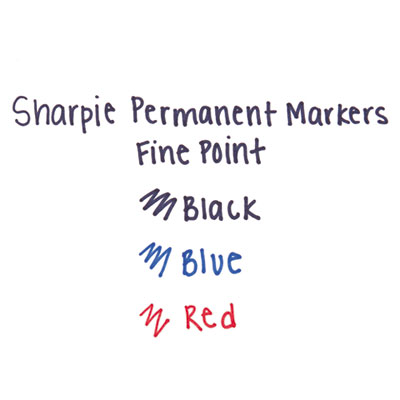 Sharpie Permanent Markers
Fine Point
Black
Blue
Red